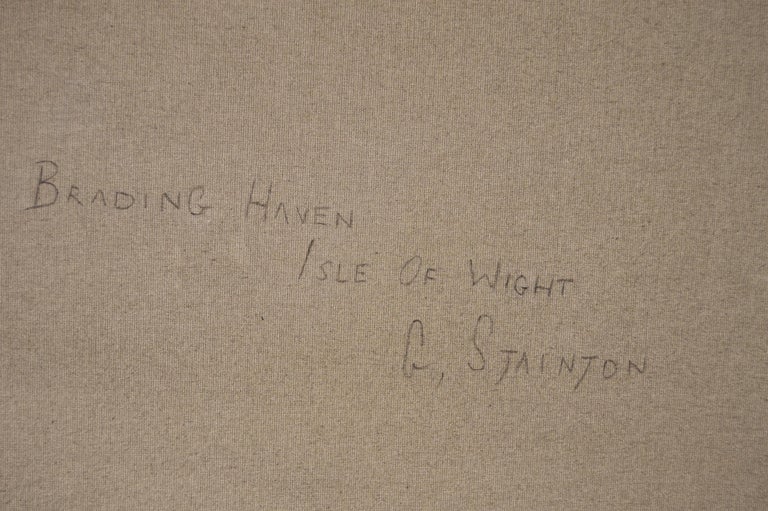 BRADING HAVEN
ISLE OF WIGHT
G, STAINTON